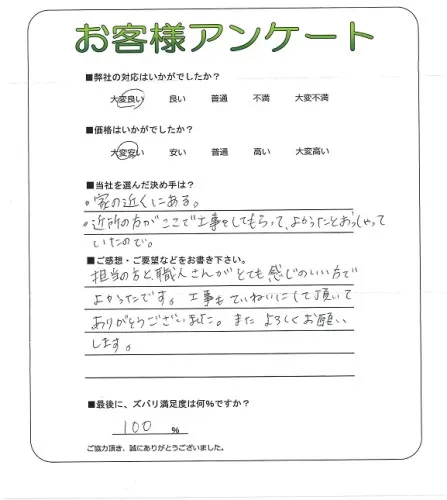 お客様アンケート
■弊社の対応はいかがでしたか？
大変良い 良い 普通 不満 大変不満
■価格はいかがでしたか？
大変安い 安い 普通 高い 大変高い
■当社を選んだ決め手は？
。家の近くにある。
。近所の方がここで工事をしてもらって、よかったとおっしゃって
いたので。
■ご感想・ご要望などをお書き下さい。
担当の方と、職人さんがとても感じのいい方で
よかったです。工事もていねいにして頂いて
ありがとうございました。また よろしくお願い
します。
■最後に、ズバリ満足度は何％ですか？
100 ％
ご協力頂き、誠にありがとうございました。